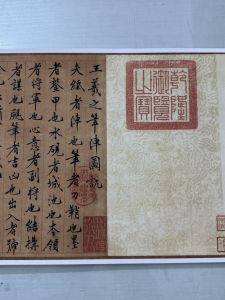 乾隆
御覽
之寶
王羲之筆陣圖說
夫紙者陣也筆者刀鞘也墨
者鍪甲也水硯者城池也本領
者將軍也心意者副將也結構
者謀也颺筆者吉凶也出入者號